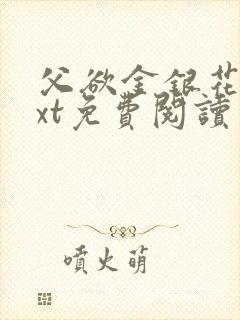 父欲金銀花
xt免費閱讀
噴火萌